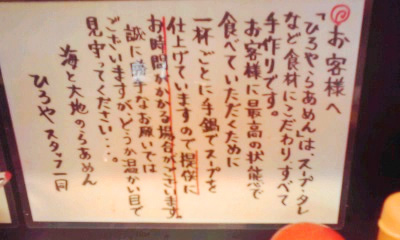 お客様へ
「ひろやらあめん」は、スープ・タレ
など食材にこだわり、すべて
手作りです。
お客様に最高の状態で
食べていただくために
一杯ごとに手鍋でスープを
仕上げていますので提供に
お時間がかかる場合がございます。
誠に勝手なお願いでは
ございますが、どうか温かい目で
見守ってください…。
海と大地のらあめん
ひろやスタッフ一同